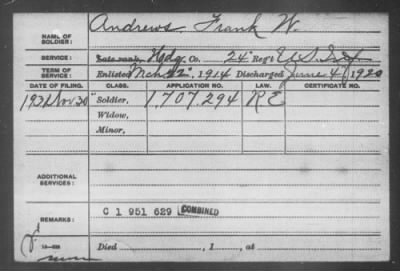 Andrews Frank W.
NAME OF SOLDIER:
SERVICE: Late rank, Hdq. Co. 24" Reg't U.S. Inf.
TERM OF SERVICE: Enlisted Mch 22", 1914 Discharged June 4, 1920
DATE OF FILING. CLASS. APPLICATION NO. LAW. CERTIFICATE NO.
1931 Nov. 30" Soldier, 1,707,294 R E
Widow,
Minor,
ADDITIONAL SERVICES:
REMARKS: C 1 951 629 COMBINED
Died , 1 , at